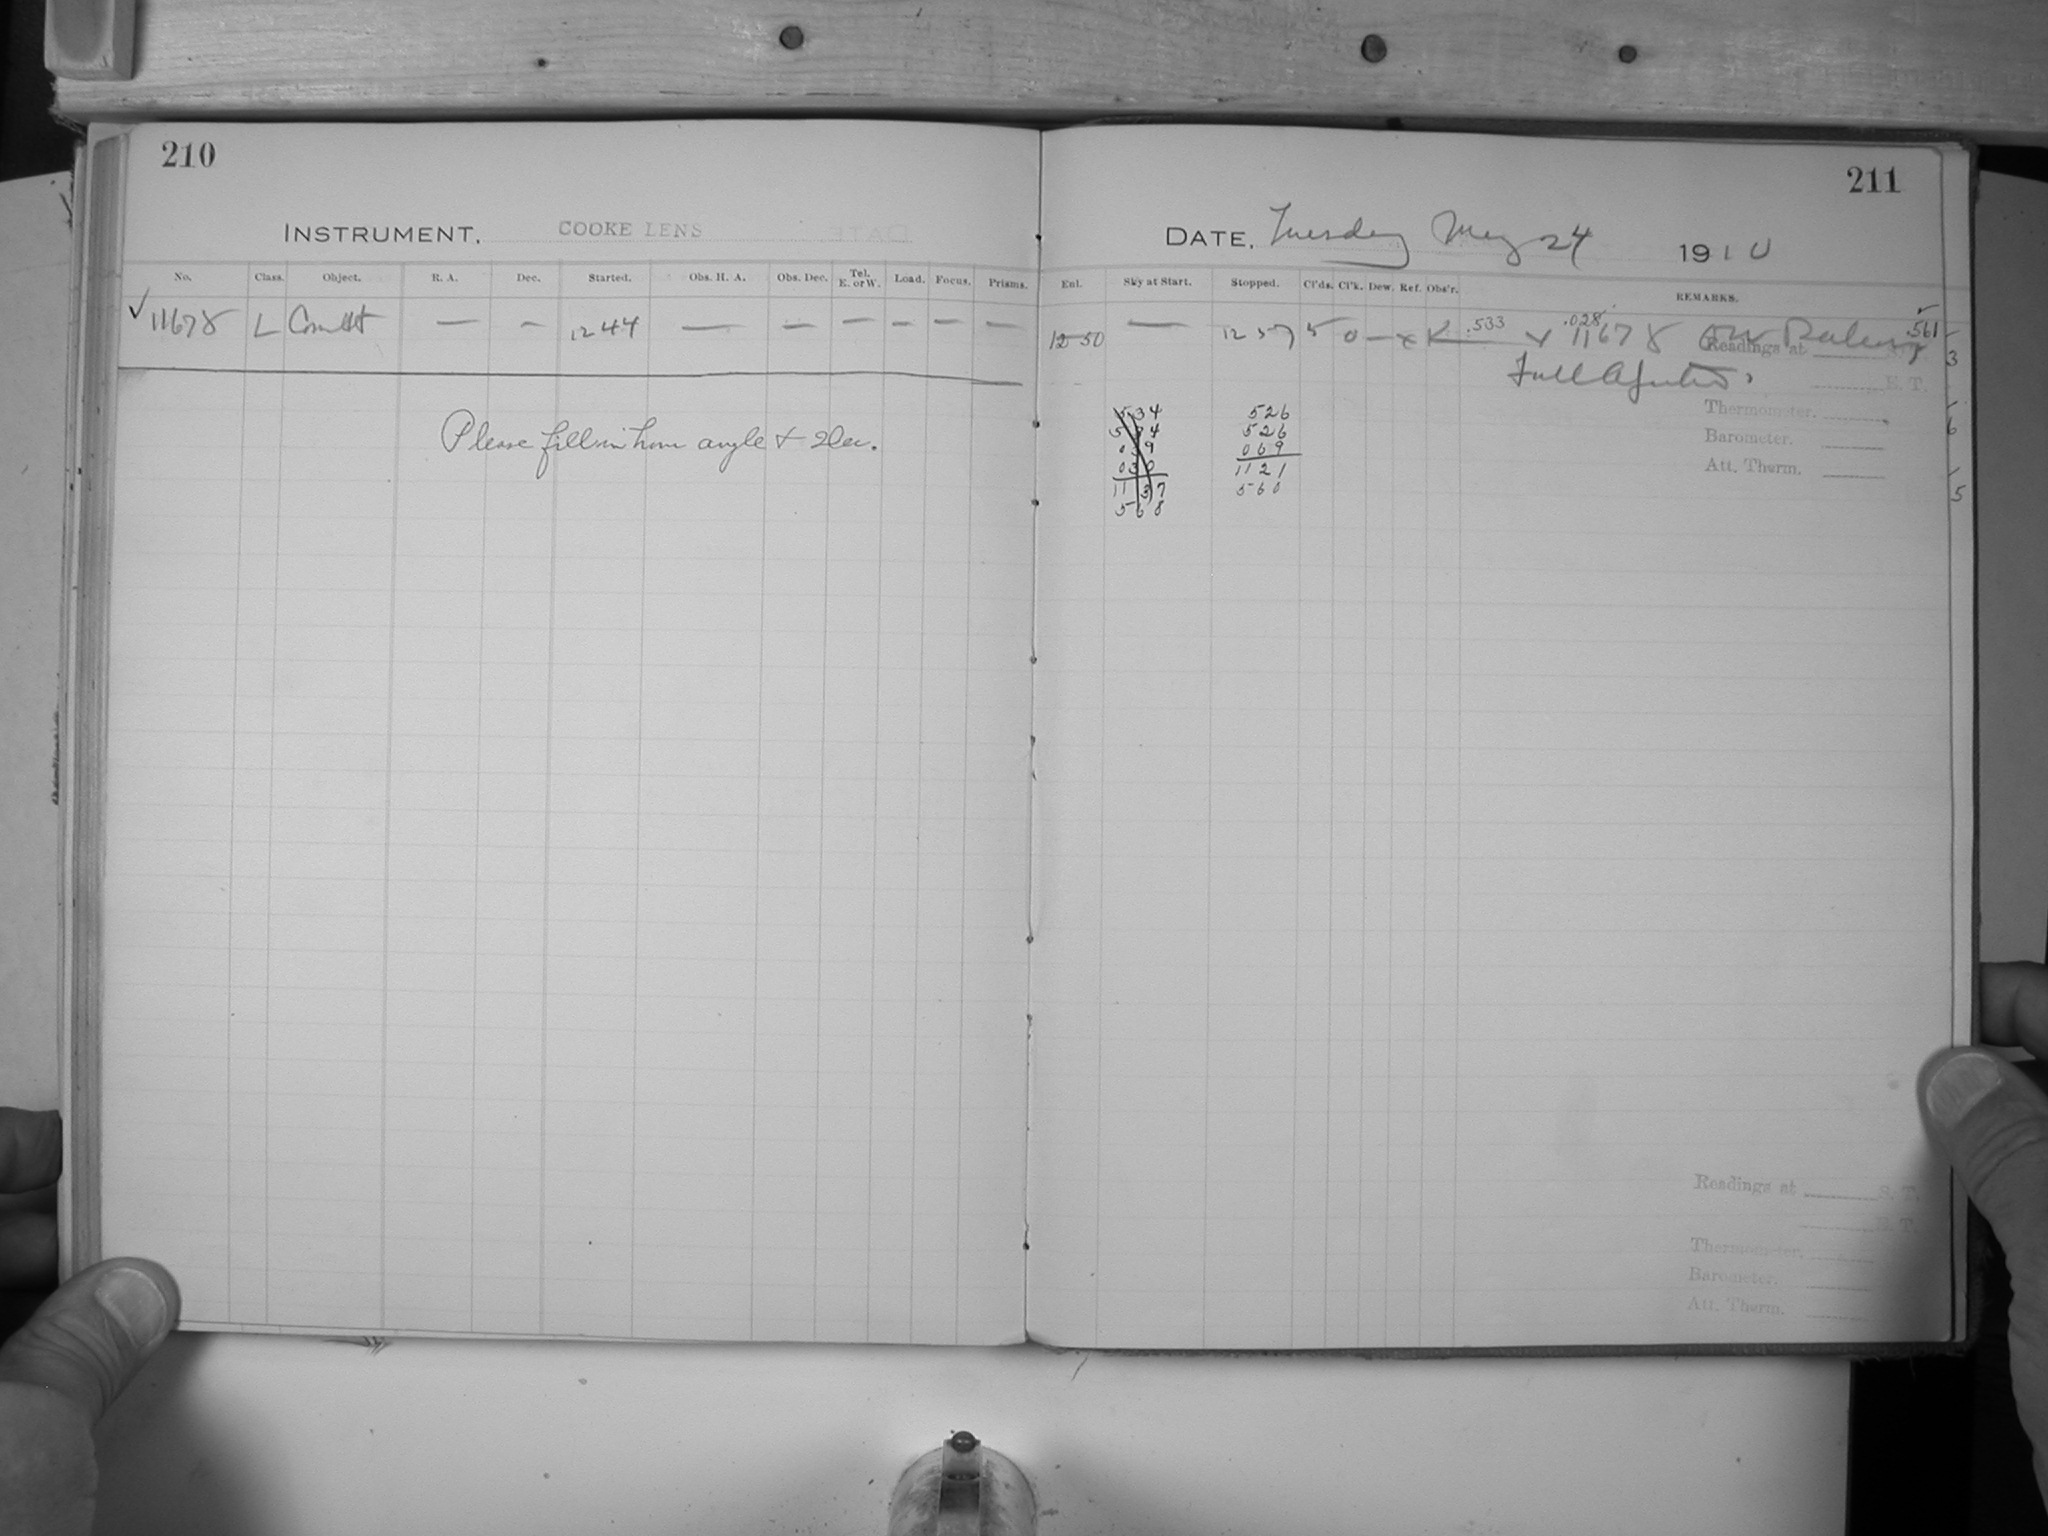 210
INSTRUMENT. COOKE LENS
No. Class. Object. R. A. Dec. Started. Obs. H. A. Obs. Dec. Tel. E. or W. Load. Focus. Prisms.
✓ 11678 L — — 12 44 — — — — — —
Please fill in hour angle + Dec.
211
DATE. Tuesday May 24 1910
Exl. Sky at Start. Stopped. Cl'ds. Cl'k. Dew. Ref. Obs'r. REMARKS.
12 50 — 12 57 5 0 — x K .533 .028 11678 .561
Full
Readings at
E. T.
Thermometer.
Barometer.
Att. Therm.
534
534
039
030
1137
568
526
526
069
1121
560
3
6
5
Readings at S. T.
E. T.
Thermometer.
Barometer.
Att. Therm.